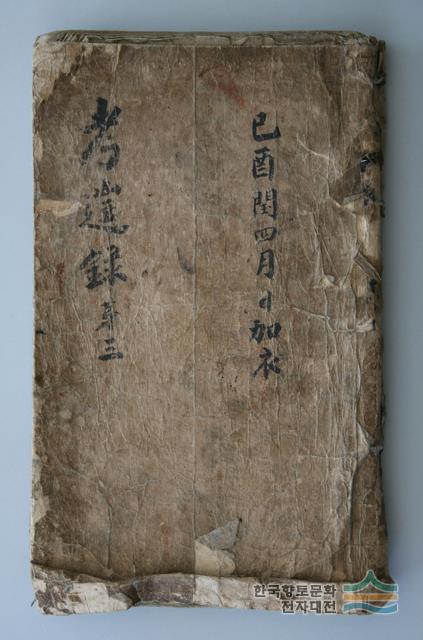 己酉閏四月日加衣
考錄 第三
한국향토문화
전자대전